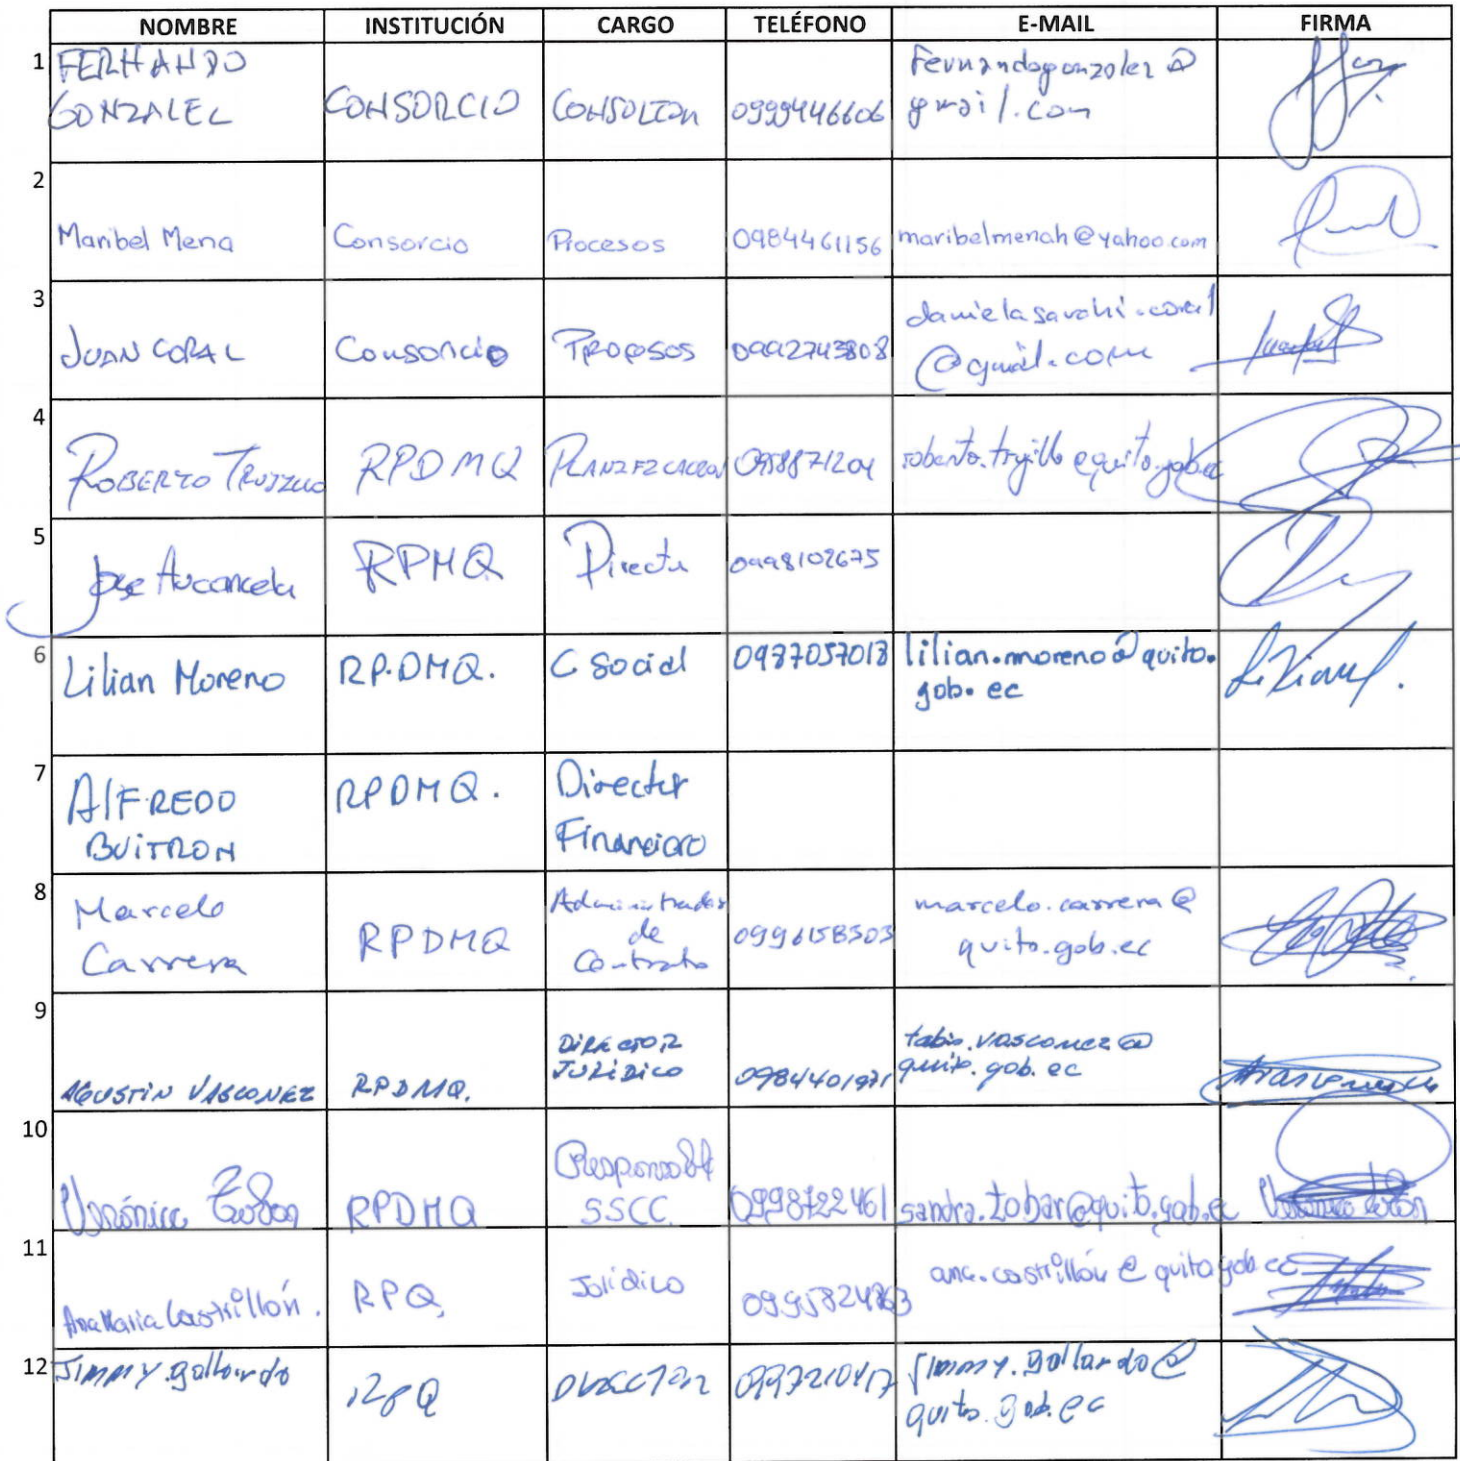 NOMBRE INSTITUCIÓN CARGO TELÉFONO E-MAIL FIRMA
1 FERNANDO GONZALEZ CONSORCIO CONSULTOR 0999446606 Fernandogonzolez@
gmail.com
2 Maribel Mena Consorcio Procesos 0984461156 maribelmenah@yahoo.com
3 JUAN CORAL Consorcio Procesos 0992743808 danielasarahi.coral
@gmail.com
4 ROBERTO TRUJILLO RPDMQ PLANIFICACION 0988871204 roberto.trujillo@quito.gob.ec
5 Jose Aucancela RPMQ Director 0998102675
6 Lilian Moreno RP.DMQ. C Social 0987057018 lilian.moreno@quito.
gob.ec
7 AlFREDO
BUITRON RPDMQ. Director
Financiero
8 Marcelo
Carrera RPDMQ Administrador
de
Contrato 0996158503 marcelo.carrera@
quito.gob.ec
9 AGUSTIN VASCONEZ RPDMQ. DIRECTOR
JURIDICO 0984401971 fabio.vasconez@
quito.gob.ec
10 Verónica Tobar RPDMQ Responsable
SSCC. 0998722461 sandra.tobar@quito.gob.ec
11 Ana Maria Castrillón. RPQ Jurídico ana.castrillón@quito.gob.ec
12 JIMMY.gallardo 0997210417 jimmy.gallardo@
quito.gob.ec